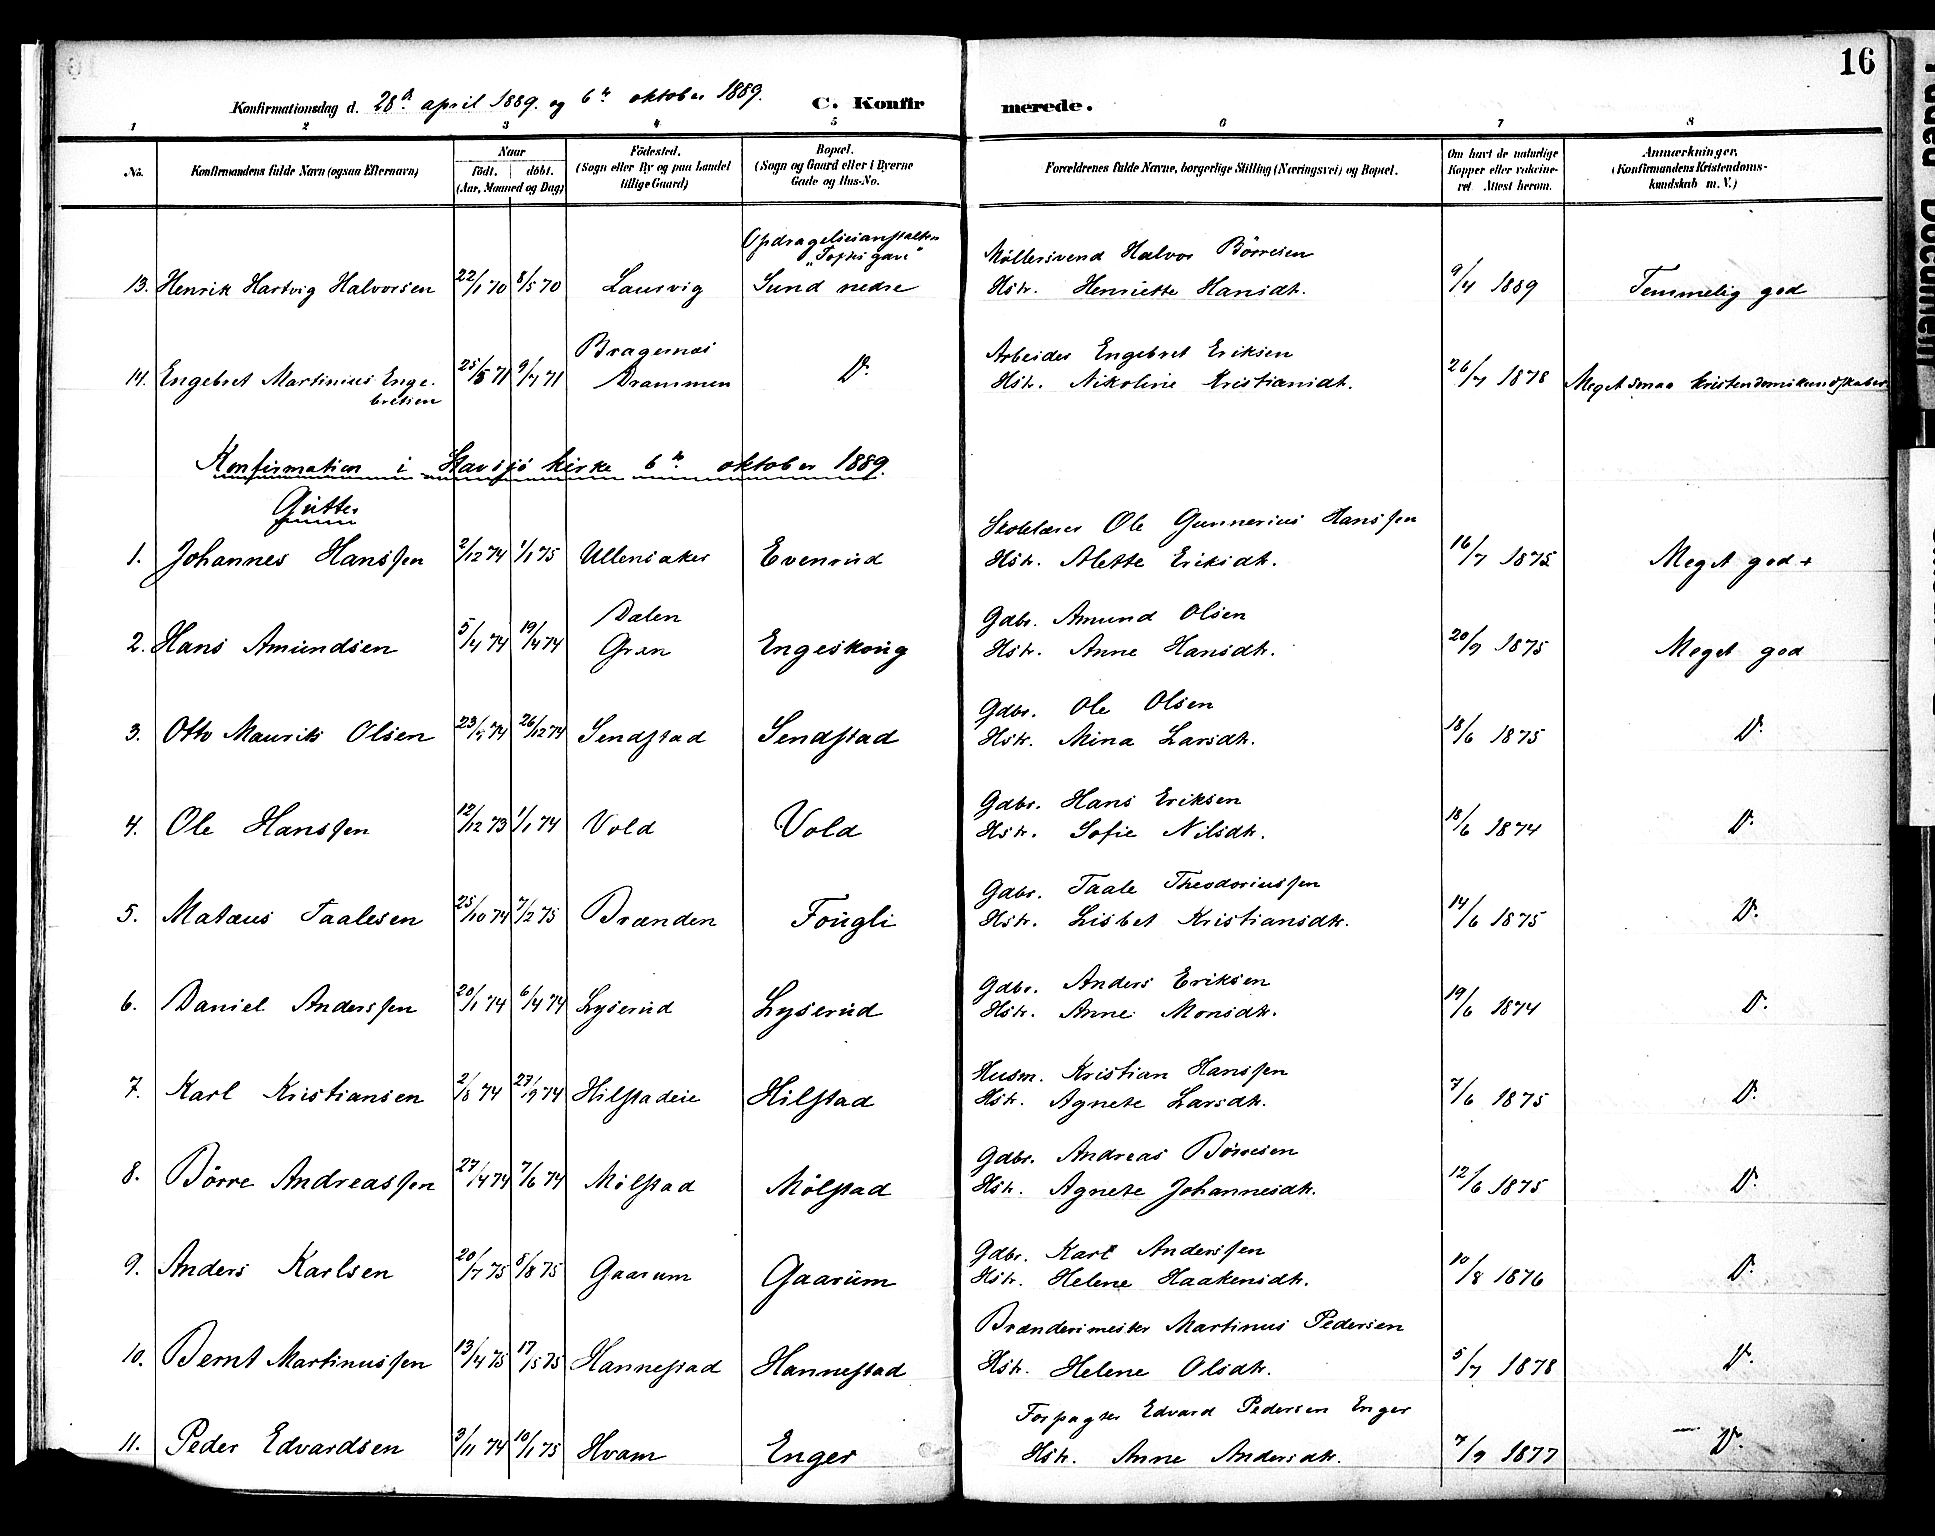 16
Konfirmationsdag d. 28de april 1889. og 6te oktober 1889. C. Konfirmerede.
1 2 3 4 5 6 7 8
No. Konfirmandens fulde Navn (ogsaa Efternavn) Naar født. døbt. (Aar, Maaned og Dag) Fødested. (Sogn eller By og paa Landet tillige Gaard) Bopæl. (Sogn og Gaard eller i Byerne Gade og Hus-No. Forældrenes fulde Navne, borgerlige Stilling (Næringsvei) og Bopæl. Om havt de naturlige Kopper eller vakcineret Attest herom. Anmærkninger. (Konfirmandens Kristendomskundskab m. V.)
Opdragelsesanstalten
„Toftes gave" Møllersvend Halvor Börresen
13. Henrik Hartvig Halvorsen 22/1 70 8/5 70 Laurvig Sund nedre Hstr. Henriette Hansdtr. 9/4 1889 Temmelig god
Bragernæs Arbeider Engebret Eriksen
14. Engebret Martinius Enge- 25/5 71 9/7 71 Drammen D. Hstr. Nikoline Kristiansdtr. 26/7 1878 Meget smaa kristendomskundskaber
bretsen
Konfirmation i Stavsjö kirke 6te oktober 1889.
Gutter
Skolelærer Ole Gunnerius Hanssen
1. Johannes Hanssen 2/12 74 1/1 75 Ullensaker Evenrud Hstr. Alette Eriksdtr. 16/7 1875 Meget god +
Dalen Gdbr. Amund Olsen
2. Hans Amundsen 5/4 74 19/4 74 Gren Engeskoug Hstr. Anne Hansdtr. 20/9 1875 Meget god
Gdbr. Ole Olsen
3. Otto Maurits Olsen 26/12 74 Sendstad Sendstad Hstr. Mina Larsdtr. 18/6 1875 D.
Gdbr. Hans Eriksen
4. Ole Hanssen 12/12 73 1/1 74 Vold Vold Hstr. Sofie Nilsdtr. 18/6 1874 D.
Gdbr. Taale Theodoriussen
5. Matæus Taalesen 25/10 74 7/2 75 Brænden Fougli Hstr. Lisbet Kristiansdtr. 14/6 1875 D.
Gdbr. Anders Eriksen
6. Daniel Anderssen 20/1 74 6/4 74 Lyserud Lyserud Hstr. Anne Monsdtr. 19/6 1874 D.
Husm. Kristian Hanssen
7. Karl Kristiansen 2/8 74 27/9 74 Hilstadeie Hilstad Hstr. Agnete Larsdtr. 7/6 1875 D.
Gdbr. Andreas Börresen
8. Börre Andreassen 27/4 74 7/6 74 Mölstad Mölstad Hstr. Agnete Johannesdtr. 12/6 1875 D.
Gdbr. Karl Anderssen
9. Anders Karlsen 20/7 75 8/8 75 Gaarum Gaarum Hstr. Helene Haakensdtr. 10/8 1876 D.
Brænderimester Martinus Pedersen
10. Bernt Martinussen 13/4 75 17/5 75 Hannestad Hannestad Hstr. Helene Olsdtr. 5/7 1878 D.
Forpagter Edvard Pedersen Enger
11. Peder Edvardsen 3/11 74 10/1 75 Hvam Enger Hstr. Anne Andersdtr. 7/9 1877 D.